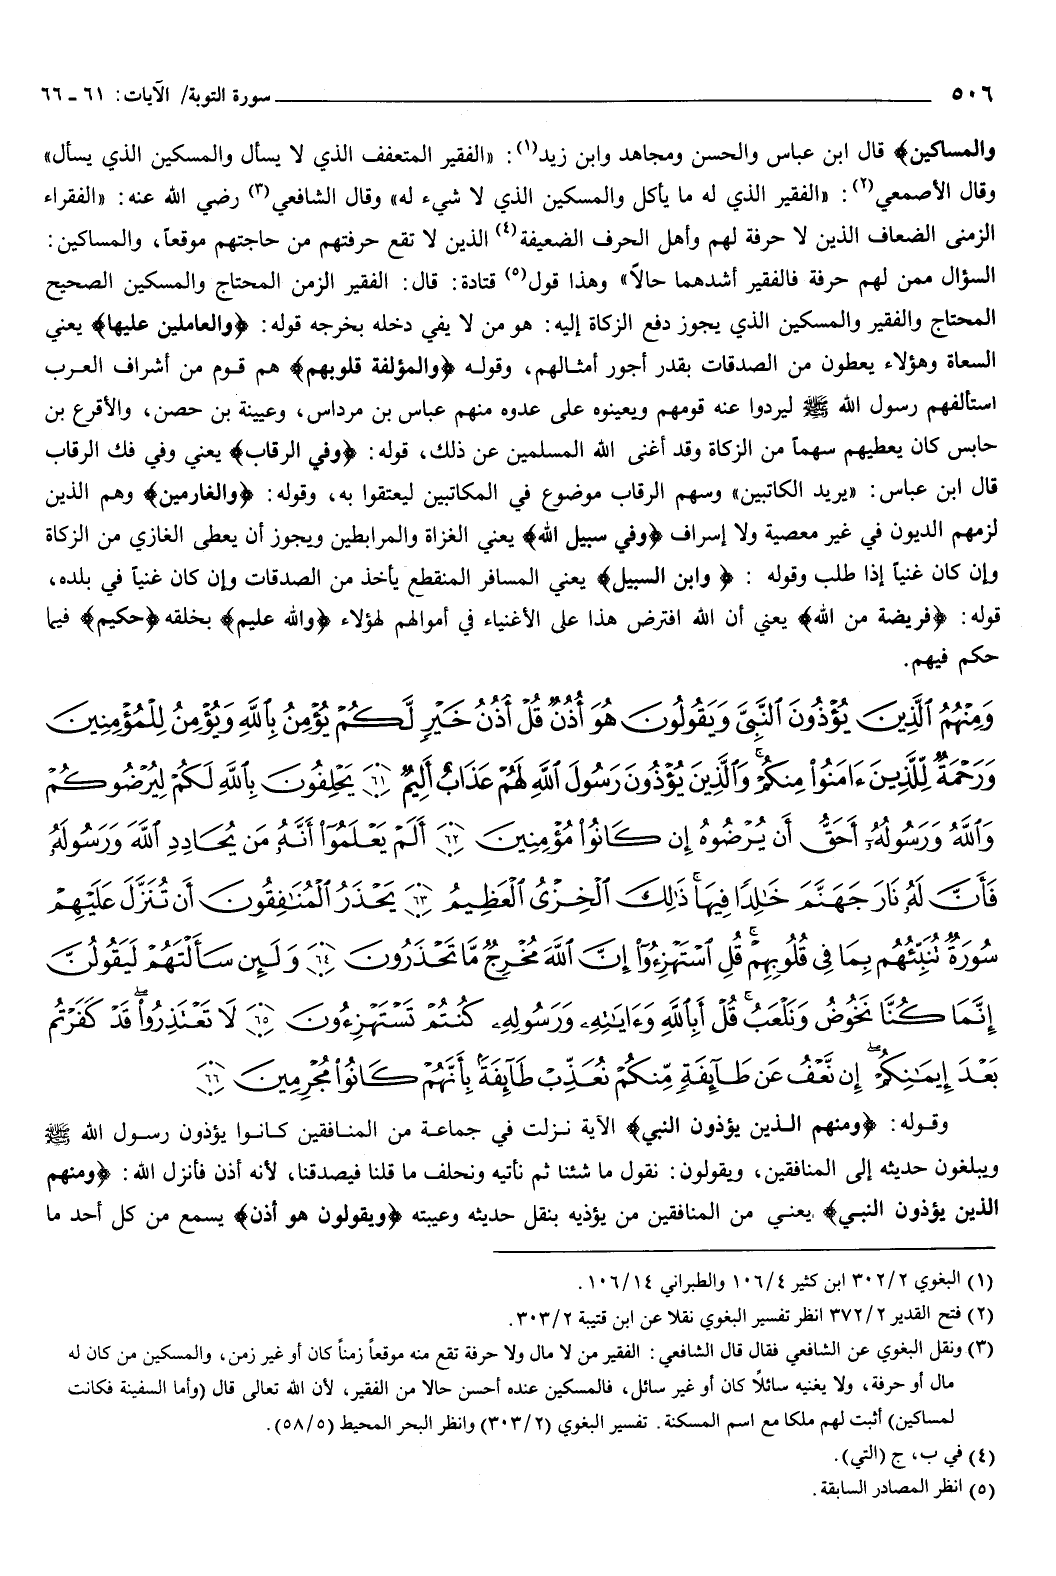 ٥٠٦ سورة التوبة/ الآيات: ٦١ ـ ٦٦
والمساكين﴾ قال ابن عباس والحسن ومجاهد وابن زيد(١): «الفقير المتعفف الذي لا يسأل والمسكين الذي يسأل»
وقال الأصمعي(٢): «الفقير الذي له ما يأكل والمسكين الذي لا شيء له» وقال الشافعي(٣) رضي الله عنه: «الفقراء
الزمنى الضعاف الذين لا حرفة لهم وأهل الحرف الضعيفة(٤) الذين لا تقع حرفتهم من حاجتهم موقعاً، والمساكين:
السؤال ممن لهم حرفة فالفقير أشدهما حالاً» وهذا قول(٥) قتادة: قال: الفقير الزمن المحتاج والمسكين الصحيح
المحتاج والفقير والمسكين الذي يجوز دفع الزكاة إليه: هو من لا يفي دخله بخرجه قوله: ﴿والعاملين عليها﴾ يعني
السعاة وهؤلاء يعطون من الصدقات بقدر أجور أمثالهم، وقوله ﴿والمؤلفة قلوبهم﴾ هم قوم من أشراف العرب
استألفهم رسول الله ﷺ ليردوا عنه قومهم ويعينوه على عدوه منهم عباس بن مرداس، وعيينة بن حصن، والأقرع بن
حابس كان يعطيهم سهماً من الزكاة وقد أغنى الله المسلمين عن ذلك، قوله: ﴿وفي الرقاب﴾ يعني وفي فك الرقاب
قال ابن عباس: «يريد الكاتبين» وسهم الرقاب موضوع في المكاتبين ليعتقوا به، وقوله: ﴿والغارمين﴾ وهم الذين
لزمهم الديون في غير معصية ولا إسراف ﴿وفي سبيل الله﴾ يعني الغزاة والمرابطين ويجوز أن يعطى الغازي من الزكاة
وإن كان غنياً إذا طلب وقوله : ﴿ وابن السبيل﴾ يعني المسافر المنقطع يأخذ من الصدقات وإن كان غنياً في بلده،
قوله: ﴿فريضة من الله﴾ يعني أن الله افترض هذا على الأغنياء في أموالهم لهؤلاء ﴿والله عليم﴾ بخلقه ﴿حكيم﴾ فيما
حكم فيهم.
وَمِنْهُمُ ٱلَّذِينَ يُؤْذُونَ ٱلنَّبِيَّ وَيَقُولُونَ هُوَ أُذُنٌ قُلْ أُذُنُ خَيْرٍ لَّكُمْ يُؤْمِنُ بِٱللَّهِ وَيُؤْمِنُ لِلْمُؤْمِنِينَ
وَرَحْمَةٌ لِّلَّذِينَ ءَامَنُوا۟ مِنكُمْ ۚ وَٱلَّذِينَ يُؤْذُونَ رَسُولَ ٱللَّهِ لَهُمْ عَذَابٌ أَلِيمٌ ۝٦١ يَحْلِفُونَ بِٱللَّهِ لَكُمْ لِيُرْضُوكُمْ
وَٱللَّهُ وَرَسُولُهُۥٓ أَحَقُّ أَن يُرْضُوهُ إِن كَانُوا۟ مُؤْمِنِينَ ۝٦٢ أَلَمْ يَعْلَمُوٓا۟ أَنَّهُۥ مَن يُحَادِدِ ٱللَّهَ وَرَسُولَهُۥ
فَأَنَّ لَهُۥ نَارَ جَهَنَّمَ خَٰلِدًا فِيهَا ۚ ذَٰلِكَ ٱلْخِزْىُ ٱلْعَظِيمُ ۝٦٣ يَحْذَرُ ٱلْمُنَٰفِقُونَ أَن تُنَزَّلَ عَلَيْهِمْ
سُورَةٌ تُنَبِّئُهُم بِمَا فِى قُلُوبِهِمْ ۚ قُلِ ٱسْتَهْزِءُوٓا۟ إِنَّ ٱللَّهَ مُخْرِجٌ مَّا تَحْذَرُونَ ۝٦٤ وَلَئِن سَأَلْتَهُمْ لَيَقُولُنَّ
إِنَّمَا كُنَّا نَخُوضُ وَنَلْعَبُ ۚ قُلْ أَبِٱللَّهِ وَءَايَٰتِهِۦ وَرَسُولِهِۦ كُنتُمْ تَسْتَهْزِءُونَ ۝٦٥ لَا تَعْتَذِرُوا۟ ۖ قَدْ كَفَرْتُم
بَعْدَ إِيمَٰنِكُمْ ۖ إِن نَّعْفُ عَن طَآئِفَةٍ مِّنكُمْ نُعَذِّبْ طَآئِفَةًۢ بِأَنَّهُمْ كَانُوا۟ مُجْرِمِينَ ۝٦٦
وقوله: ﴿ومنهم الذين يؤذون النبي﴾ الآية نزلت في جماعة من المنافقين كانوا يؤذون رسول الله ﷺ
ويبلغون حديثه إلى المنافقين، ويقولون: نقول ما شئنا ثم نأتيه ونحلف ما قلنا فيصدقنا، لأنه أذن فأنزل الله: ﴿ومنهم
الذين يؤذون النبي﴾ يعني من المنافقين من يؤذيه بنقل حديثه وعيبته ﴿ويقولون هو أذن﴾ يسمع من كل أحد ما
(١) البغوي ٣٠٢/٢ ابن كثير ١٠٦/٤ والطبراني ١٠٦/١٤.
(٢) فتح القدير ٣٧٢/٢ انظر تفسير البغوي نقلا عن ابن قتيبة ٣٠٣/٢.
(٣) ونقل البغوي عن الشافعي فقال قال الشافعي: الفقير من لا مال ولا حرفة تقع منه موقعاً زمناً كان أو غير زمن، والمسكين من كان له
مال أو حرفة، ولا يغنيه سائلاً كان أو غير سائل، فالمسكين عنده أحسن حالا من الفقير، لأن الله تعالى قال (وأما السفينة فكانت
لمساكين) أثبت لهم ملكا مع اسم المسكنة. تفسير البغوي (٣٠٣/٢) وانظر البحر المحيط (٥٨/٥).
(٤) في ب، ج (التي).
(٥) انظر المصادر السابقة.